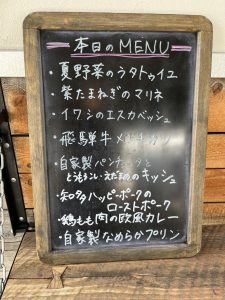 本日のMENU
・夏野菜のラタトゥイユ
・紫たまねぎのマリネ
・イワシのエスカベッシュ
・飛騨牛メンチカツ
・自家製パンチェッタと
とうもろこし・えだまめのキッシュ
・知多ハッピーポークの
ローストポーク
・鶏もも肉の欧風カレー
・自家製なめらかプリン